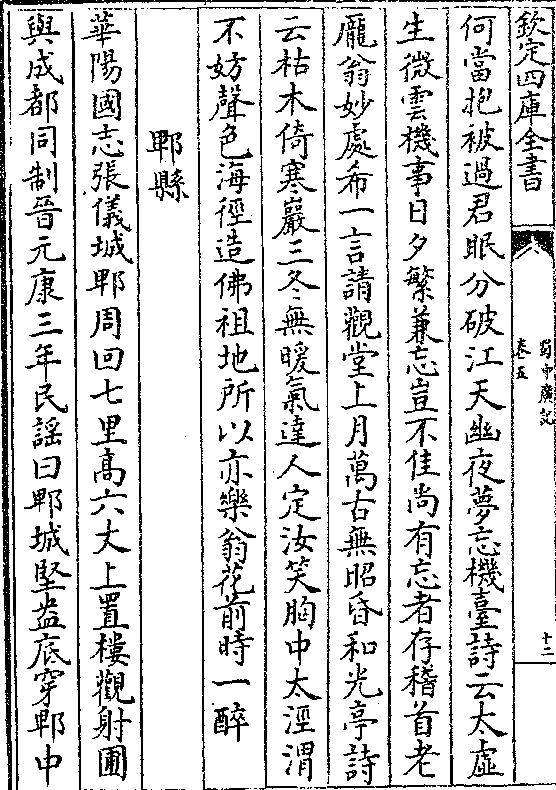 欽定四庫全書
蜀中廣記
卷五
十二
何當抱被過君眠分破江天幽夜夢忘機臺詩云太虛
生微雲機事日夕繁兼忘豈不佳尚有忘者存稽首老
龐翁妙處希一言請觀堂上月萬古無昭昏和光亭詩
云枯木倚寒巖三冬無暖氣達人定汝笑胸中太涇渭
不妨聲色海徑造佛祖地所以亦樂翁花前時一醉
郫縣
華陽國志張儀城郫周回七里高六丈上置樓觀射圃
與成都同制晉元康三年民謡曰郫城堅盎底穿郫中